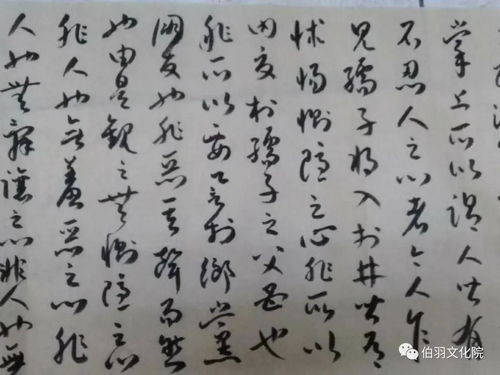 掌上所以謂人皆有
不忍人之心者今人乍
見孺子將入於井皆有
怵惕惻隱之心非所以
內交於孺子之父母也
非所以要譽於鄉黨
朋友也非惡其聲而然
也由是觀之無惻隱之心
非人也無羞惡之心非
人也無辭讓之心非人也無
伯羽文化院